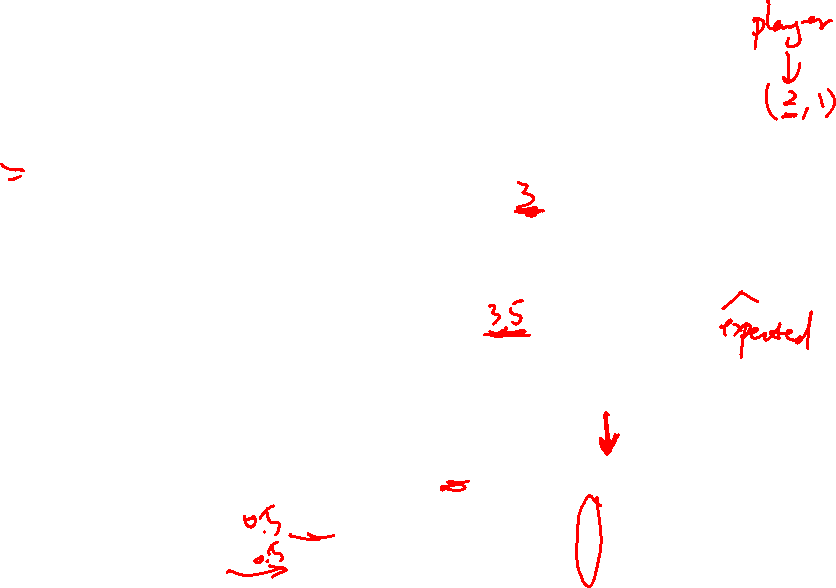 player
(2,1)
3
3.5
expected
0.5
0.5